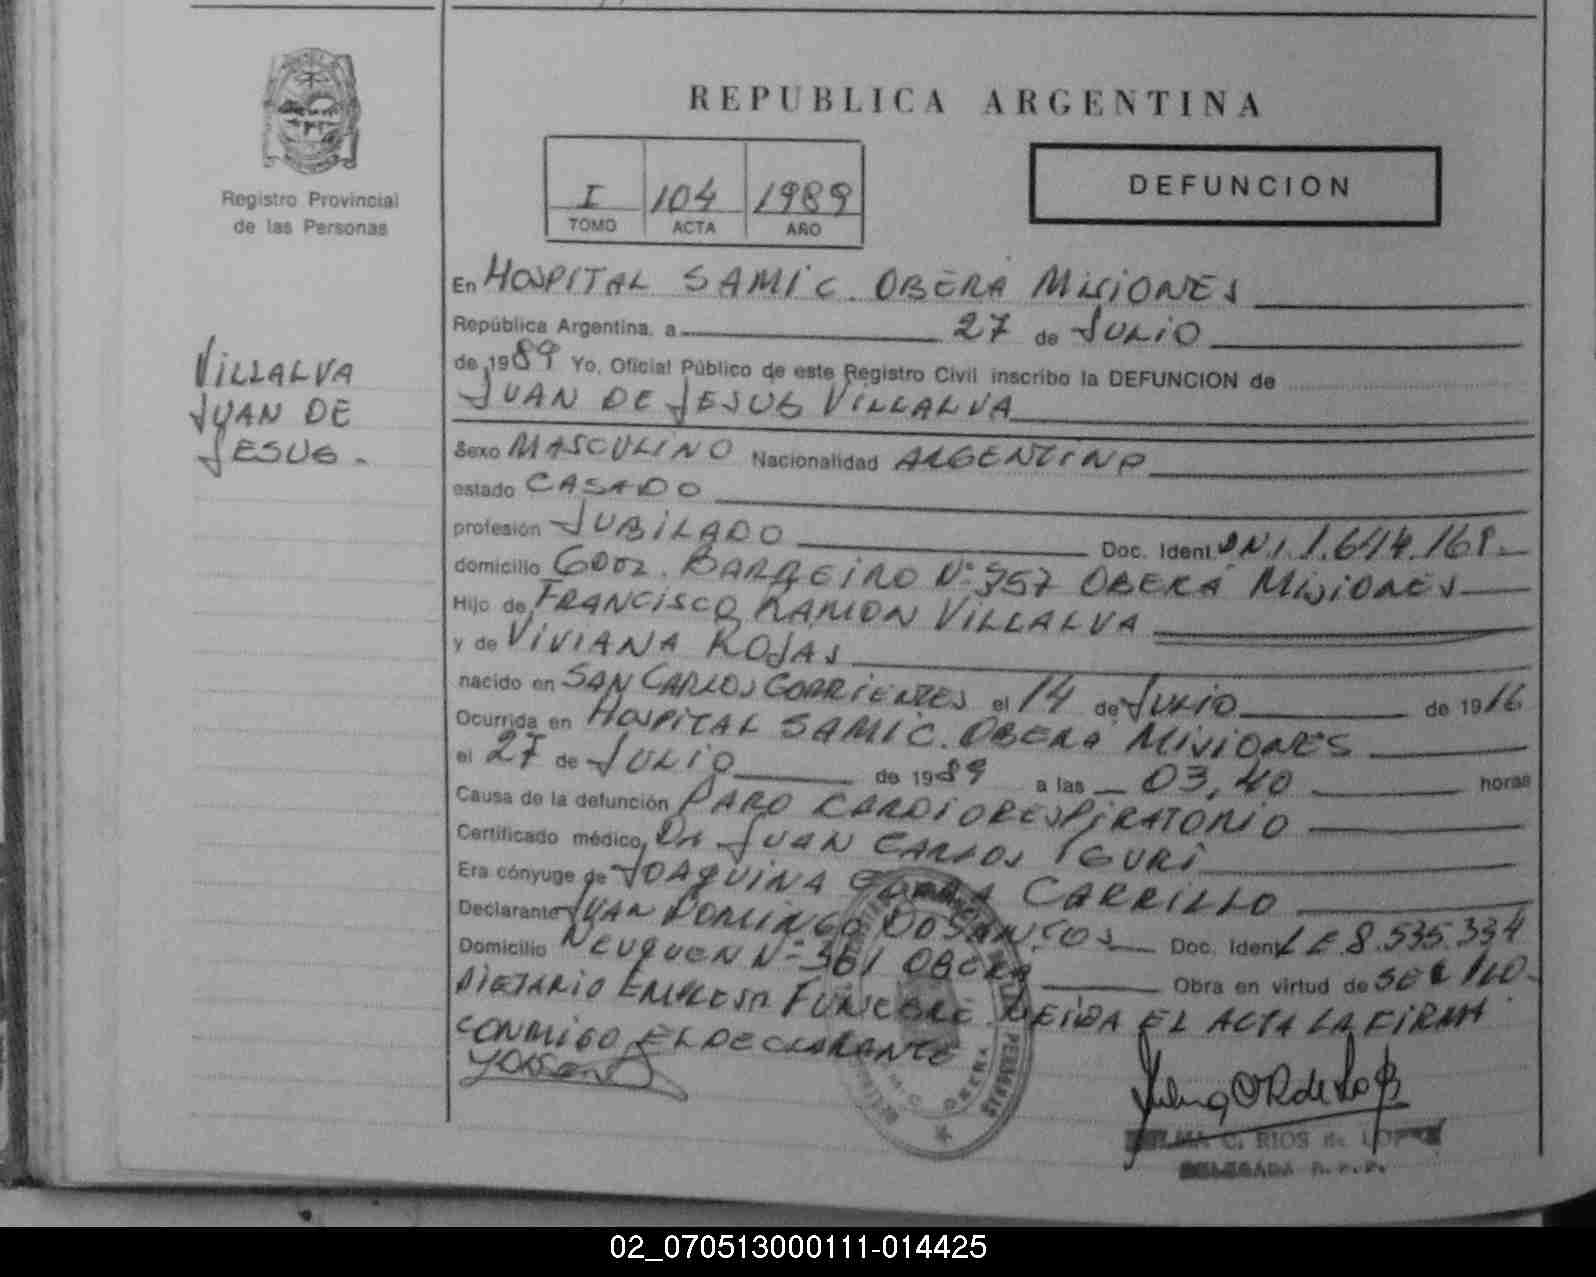 REPUBLICA ARGENTINA
Registro Provincial
de las Personas
I 104 1989
TOMO ACTA AÑO
DEFUNCION
VILLALVA
JUAN DE
JESUS.-
En HOSPITAL SAMIC. OBERÁ MISIONES
República Argentina, a 27 de JULIO
de 1989 Yo, Oficial Público de este Registro Civil inscribo la DEFUNCION de
JUAN DE JESUS VILLALVA
Sexo MASCULINO Nacionalidad ARGENTINO
estado CASADO
profesión JUBILADO Doc. Ident. DNI 1.644.168.-
domicilio GOB. BARREIRO Nº 357 OBERÁ MISIONES
Hijo de FRANCISCO RAMON VILLALVA
y de VIVIANA ROJAS
nacido en SAN CARLOS CORRIENTES el 14 de JULIO de 1916
Ocurrida en HOSPITAL SAMIC. OBERÁ MISIONES
el 27 de JULIO de 1989 a las 03,40 horas
Causa de la defunción PARO CARDIORESPIRATORIO
Certificado médico, Dr JUAN CARLOS IGURI
Era cónyuge de JOAQUINA CARRILLO
Declarante JUAN DOMINGO DOSANTOS Doc. Ident LE 8.535.334
Domicilio NEUQUEN Nº 361 OBERÁ Obra en virtud de SER PRO-
PIETARIO EMPRESA FUNEBRE. LEIDA EL ACTA LA FIRMA
CONMIGO EL DECLARANTE
C. RIOS de LOPEZ
DELEGADA R.P.P.
02_070513000111-014425